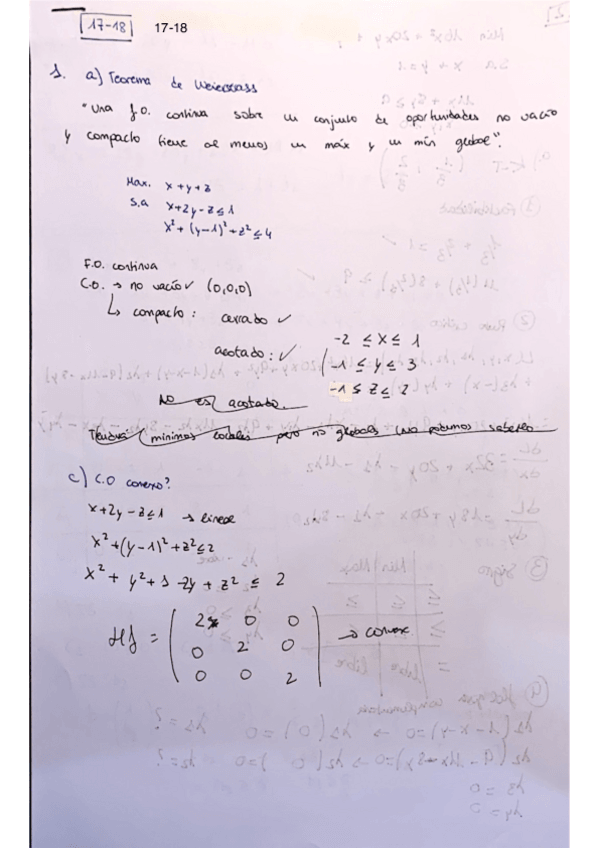 17-18
17-18
1. a) Teorema de Weierstrass
"Una f.O. continua sobre un conjunto de oportunidades no vacío
y compacto tiene al menos un máx y un mín global".
Max. x+y+z
S.a x+2y-z≤1
x²+(y-1)²+z²≤4
F.O. continua
C.O. → no vacío ✓ (0,0,0)
↳ compacto: cerrado ✓
acotado: ✓
-2 ≤ x ≤ 1
-1 ≤ y ≤ 3
-1 ≤ z ≤ 2
No es acotado.
Tendrá mínimos locales pero no globales (no podemos saberlo
c) C.O convexo?
x+2y-z≤1 → lineal
x²+(y-1)²+z²≤2
x²+y²+1-2y+z² ≤ 2
Hf = ( 2 0 0
0 2 0 → convex.
0 0 2 )